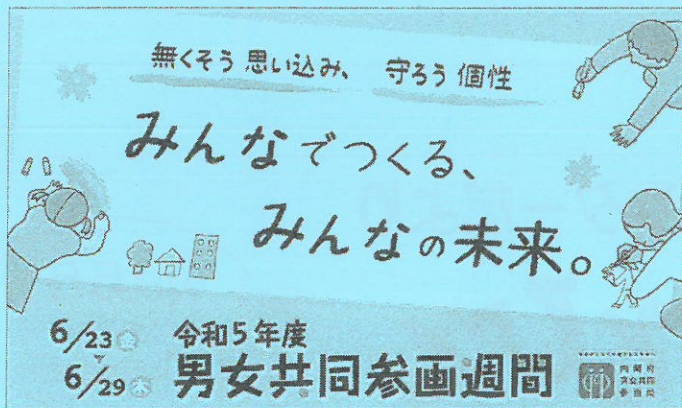 無くそう 思い込み、 守ろう 個性
みんなでつくる、
みんなの未来。
6/23 金
6/29 木
令和5年度
男女共同参画週間
内閣府
男女共同
参画局